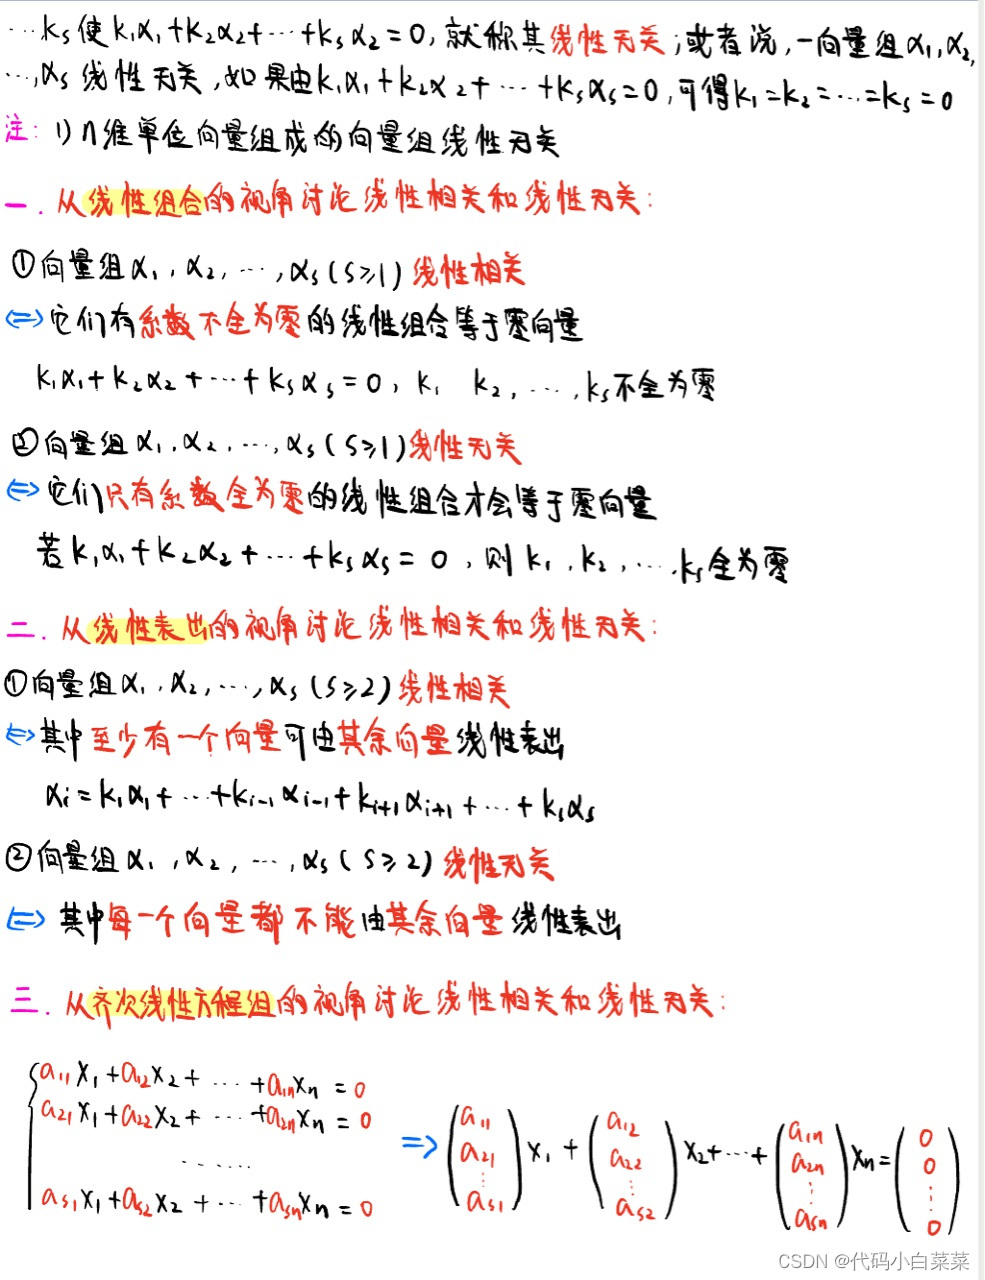 …ks使k₁α₁+k₂α₂+…+ksα₂=0,就称其线性无关;或者说,一向量组α₁,α₂,
…,αs线性无关,如果由k₁α₁+k₂α₂+…+ksαs=0,可得k₁=k₂=…=ks=0
注: 1) n维单位向量组成的向量组线性无关
一. 从线性组合的视角讨论线性相关和线性无关:
①向量组α₁,α₂,…,αs(s≥1)线性相关
⇔它们有系数不全为零的线性组合等于零向量
k₁α₁+k₂α₂+…+ksαs=0, k₁ k₂,…,ks不全为零
②向量组α₁,α₂,…,αs(s≥1)线性无关
⇔它们只有系数全为零的线性组合才会等于零向量
若k₁α₁+k₂α₂+…+ksαs=0,则k₁,k₂,…,ks全为零
二. 从线性表出的视角讨论线性相关和线性无关:
①向量组α₁,α₂,…,αs(s≥2)线性相关
⇔其中至少有一个向量可由其余向量线性表出
αi=k₁α₁+…+ki-1αi-1+ki+1αi+1+…+ksαs
②向量组α₁,α₂,…,αs(s≥2)线性无关
⇔其中每一个向量都不能由其余向量线性表出
三. 从齐次线性方程组的视角讨论线性相关和线性无关:
a11x1+a12x2+…+a1nxn=0
a21x1+a22x2+…+a2nxn=0
……
as1x1+as2x2+…+asnxn=0
⇒ (a11 a21 ⋮ as1) x1 + (a12 a22 ⋮ as2) x2+…+ (a1n a2n ⋮ asn) xn = (0 0 ⋮ 0)
CSDN @代码小白菜菜